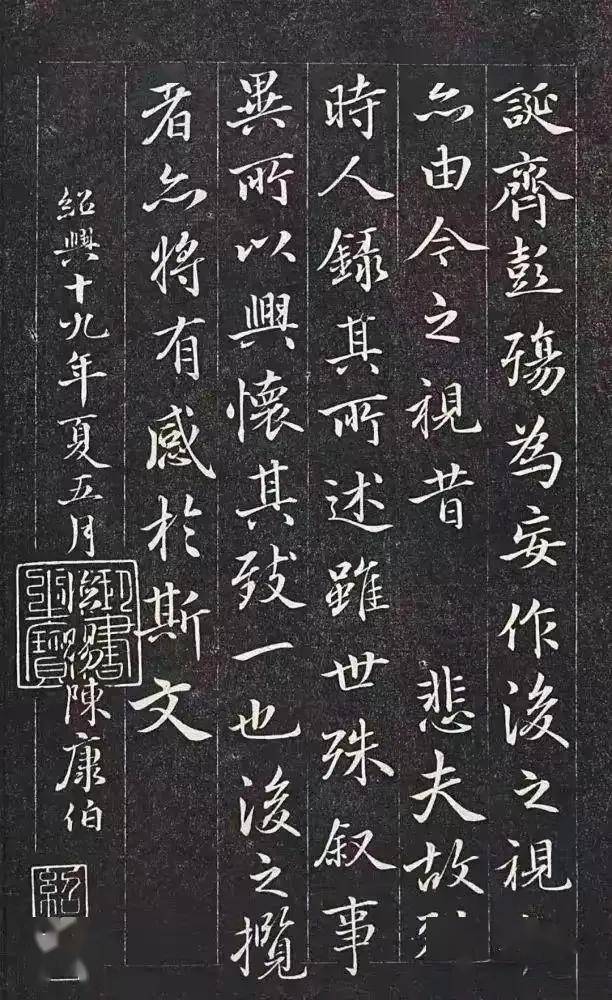 誕齊彭殤為妄作後之視
亦由今之視昔悲夫故
時人錄其所述雖世殊叙事
異所以興懷其致一也後之攬
者亦將有感於斯文
紹興十九年夏五月御賜陳康伯